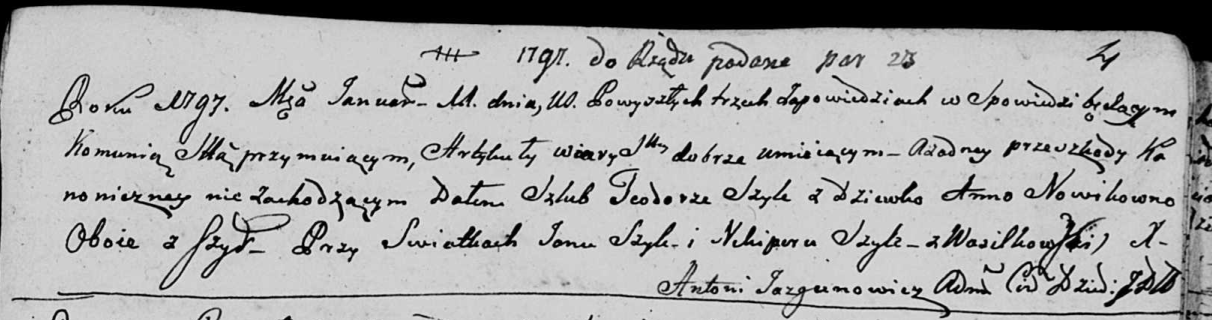 1797. do Rządu podane par 23 4
Roku 1797. Msca Januar 11. dnia, Powyszłych trzech Zapowiedziach w Spowiedzi będącym
Komunią Sttą przymuiącym, Artykuły wiary Stey dobrze umieiącym – Ażadney przeszkody Ka
noniczney nie zachodzącym Dałem Szlub Teodorze Szyle z Dziewko Anno Nowikowno
Oboie z Przy Swiatkach Janu Szyle i Nikiperu Szyle – z X –
Antoni Jazgunowicz Adm